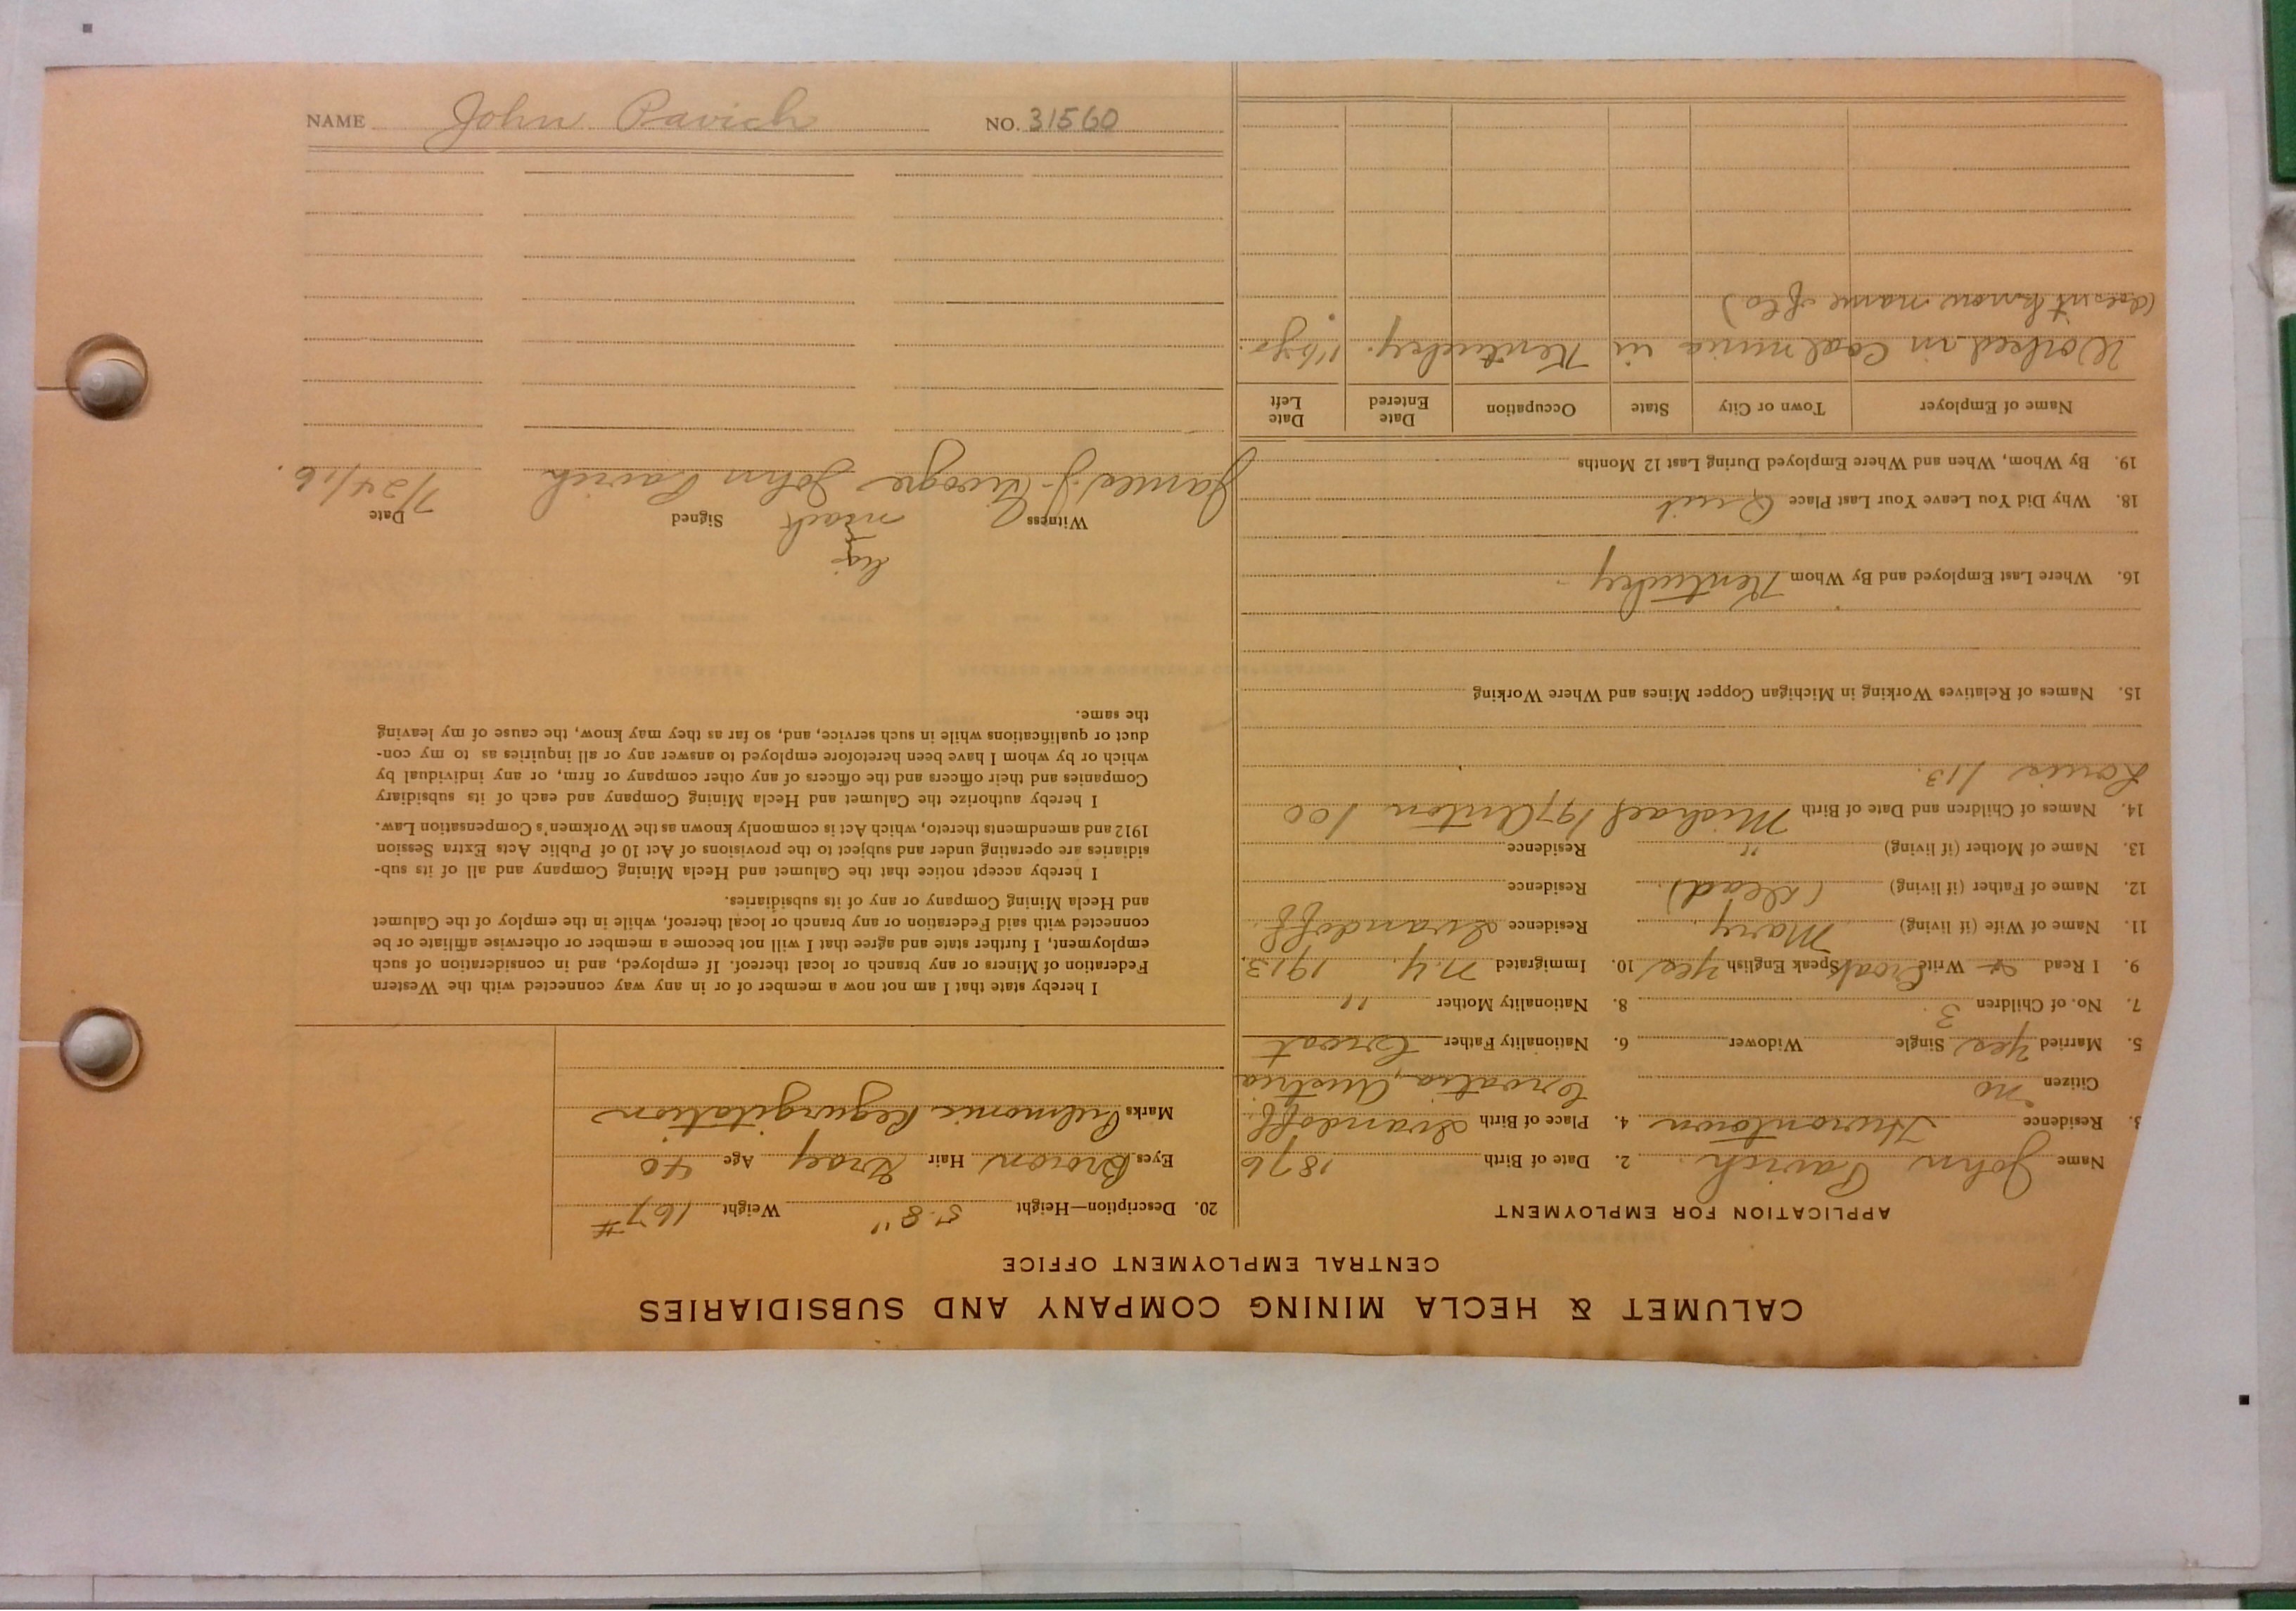 NAME John Pavich NO. 31560
CALUMET & HECLA MINING COMPANY AND SUBSIDIARIES
CENTRAL EMPLOYMENT OFFICE
APPLICATION FOR EMPLOYMENT
Name John Pavich. 2. Date of Birth 1876
3. Residence Hurontown 4. Place of Birth
Citizen no Croatia, Austria
5. Married yes Single Widower 6. Nationality Father Croat
7. No. of Children 3 8. Nationality Mother "
9. I Read & Write Croat Speak English yes 10. Immigrated N.Y. 1913
11. Name of Wife (if living) Mary. Residence
12. Name of Father (if living) (Dead) Residence
13. Name of Mother (if living) " Residence
14. Names of Children and Date of Birth Michael 197 Anton 100
Louis 113.
15. Names of Relatives Working in Michigan Copper Mines and Where Working
16. Where Last Employed and By Whom Kentucky
18. Why Did You Leave Your Last Place Quit
19. By Whom, When and Where Employed During Last 12 Months
Name of Employer Town or City State Occupation Date Entered Date Left
Worked in Coal mine in Kentucky.
(doesn't know name of Co)
20. Description—Height 5.8" Weight 167#
Eyes Brown Hair Gray Age 40
Marks Pulmonic Regurgitation
I hereby state that I am not now a member of or in any way connected with the Western
Federation of Miners or any branch or local thereof. If employed, and in consideration of such
employment, I further state and agree that I will not become a member or otherwise affiliate or be
connected with said Federation or any branch or local thereof, while in the employ of the Calumet
and Hecla Mining Company or any of its subsidiaries.
I hereby accept notice that the Calumet and Hecla Mining Company and all of its sub-
sidiaries are operating under and subject to the provisions of Act 10 of Public Acts Extra Session
1912 and amendments thereto, which Act is commonly known as the Workmen's Compensation Law.
I hereby authorize the Calumet and Hecla Mining Company and each of its subsidiary
Companies and their officers and the officers of any other company or firm, or any individual by
which or by whom I have been heretofore employed to answer any or all inquiries as to my con-
duct or qualifications while in such service, and, so far as they may know, the cause of my leaving
the same.
his
Witness mark Signed Date
James J. John Pavich 7/24/16.